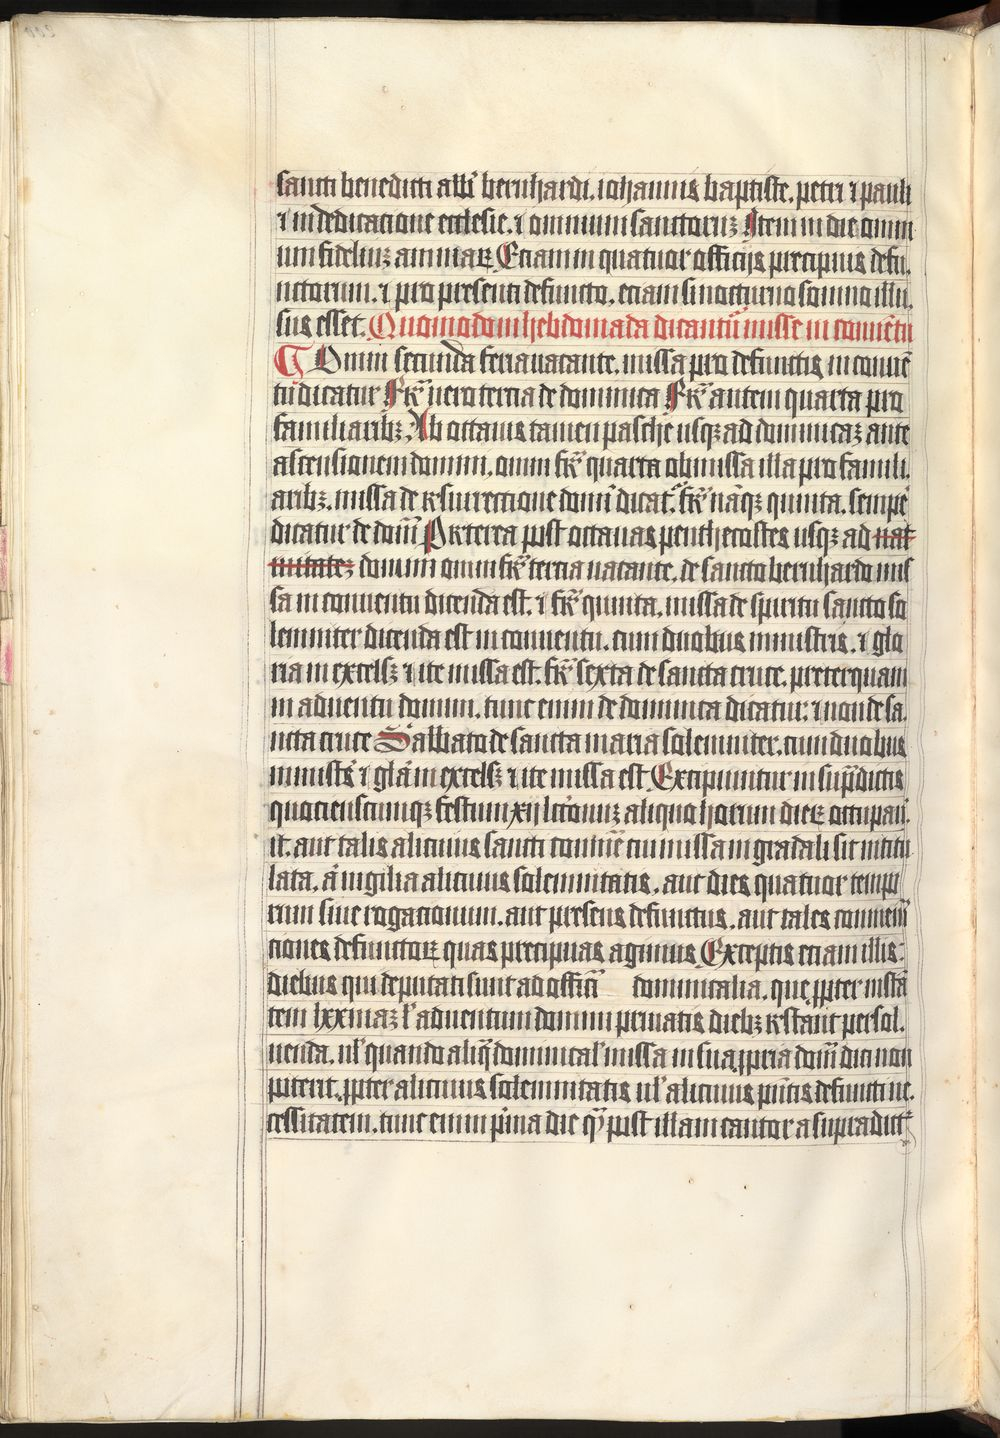 sancti benedicti abb̄ bernhardi. iohannis baptiste. petri ⁊ pauli
⁊ in dedicacione ecclesie. ⁊ omnium sanctoruꝫ Item in die omni
um fideliuꝫ animaꝝ Eciam in quatuor officijs precipuis defu,
nctorum. ⁊ pro presenti defuncto. eciam si nocturno somno illu,
sus esset. Quomodo in hebdomada dicantur̄ misse in conuētu
Omni secunda feria uacante. missa pro defunctis in conuē
tu dicatur Fr̄ uero tercia de dominica Fr̄ autem quarta pro
familiaribꝫ Ab octauis tamen pasche usqꝫ ad dominicaꝫ ante
ascensionem domini. omni fr̄ quarta ob missa illa pro famili,
aribꝫ. missa de rsurrectione domī dicat᷑. fr̄ nāqꝫ quinta. sempe᷑
dicatur de domī Pretrea post octauas penthecostes usqꝫ ad nat
iuitateꝫ domini omni fr̄ tercia uacante. de sancto bernhardo mis
sa in conuentu dicenda est. ⁊ fr̄ quinta. missa de spiritu sancto so
lemniter dicenda est in conuentu. cum duobus ministris. ⁊ glo
ria in excelsꝫ ⁊ ite missa est. fr̄ sexta de sancta cruce. preterquam
in aduentu domini. tunc enim de dominica dicatur. ⁊ non de sa,
ncta cruce Sabbato de sancta maria solemniter. cum duobus
ministꝭ ⁊ glā in excelsꝫ ⁊ ite missa est Excipiuntur in sup̄dictis
quocienscumqꝫ festum xij lc̄onuꝫ aliquo horum dieꝝ occupau᷑,
it. aut talis alicuius sancti commē cui missa in gradali sit intitu
lata. a᷑ uigilia alicuius solemnitatis. aut dies quatuor tempo
rum siue rogacionum. aut presens defunctus. aut tales commem̄
ciones defunctoꝝ quas precipuas agimus Exceptis eciam illis
diebus qui deputati sunt ad offici᷑ dominicalia. que ꝓpter instā
tem lxxmaꝫ l᷑ aduentum domini priuatis diebꝫ rstāt persol,
uenda. ul᷑ quando aliq̄ dominical᷑ missa in sua ꝓpria domī dici non
poterit. ꝓpter alicuius solemnitatis ul᷑ alicuius pn̄tis defuncti ne,
cessitatem. tunc enim p᷑ma die q̄ post illam cantor a supradict᷑